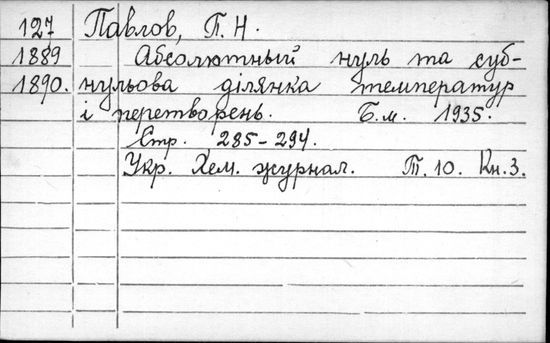 127 Павлов, П. Н.
1889 Абсолютный нуль та суб-
1890. нульова ділянка температур
і перетворень. Б.м. 1935.
Стр. 285-294.
Укр. Хем. журнал. Т. 10. Кн. 3.